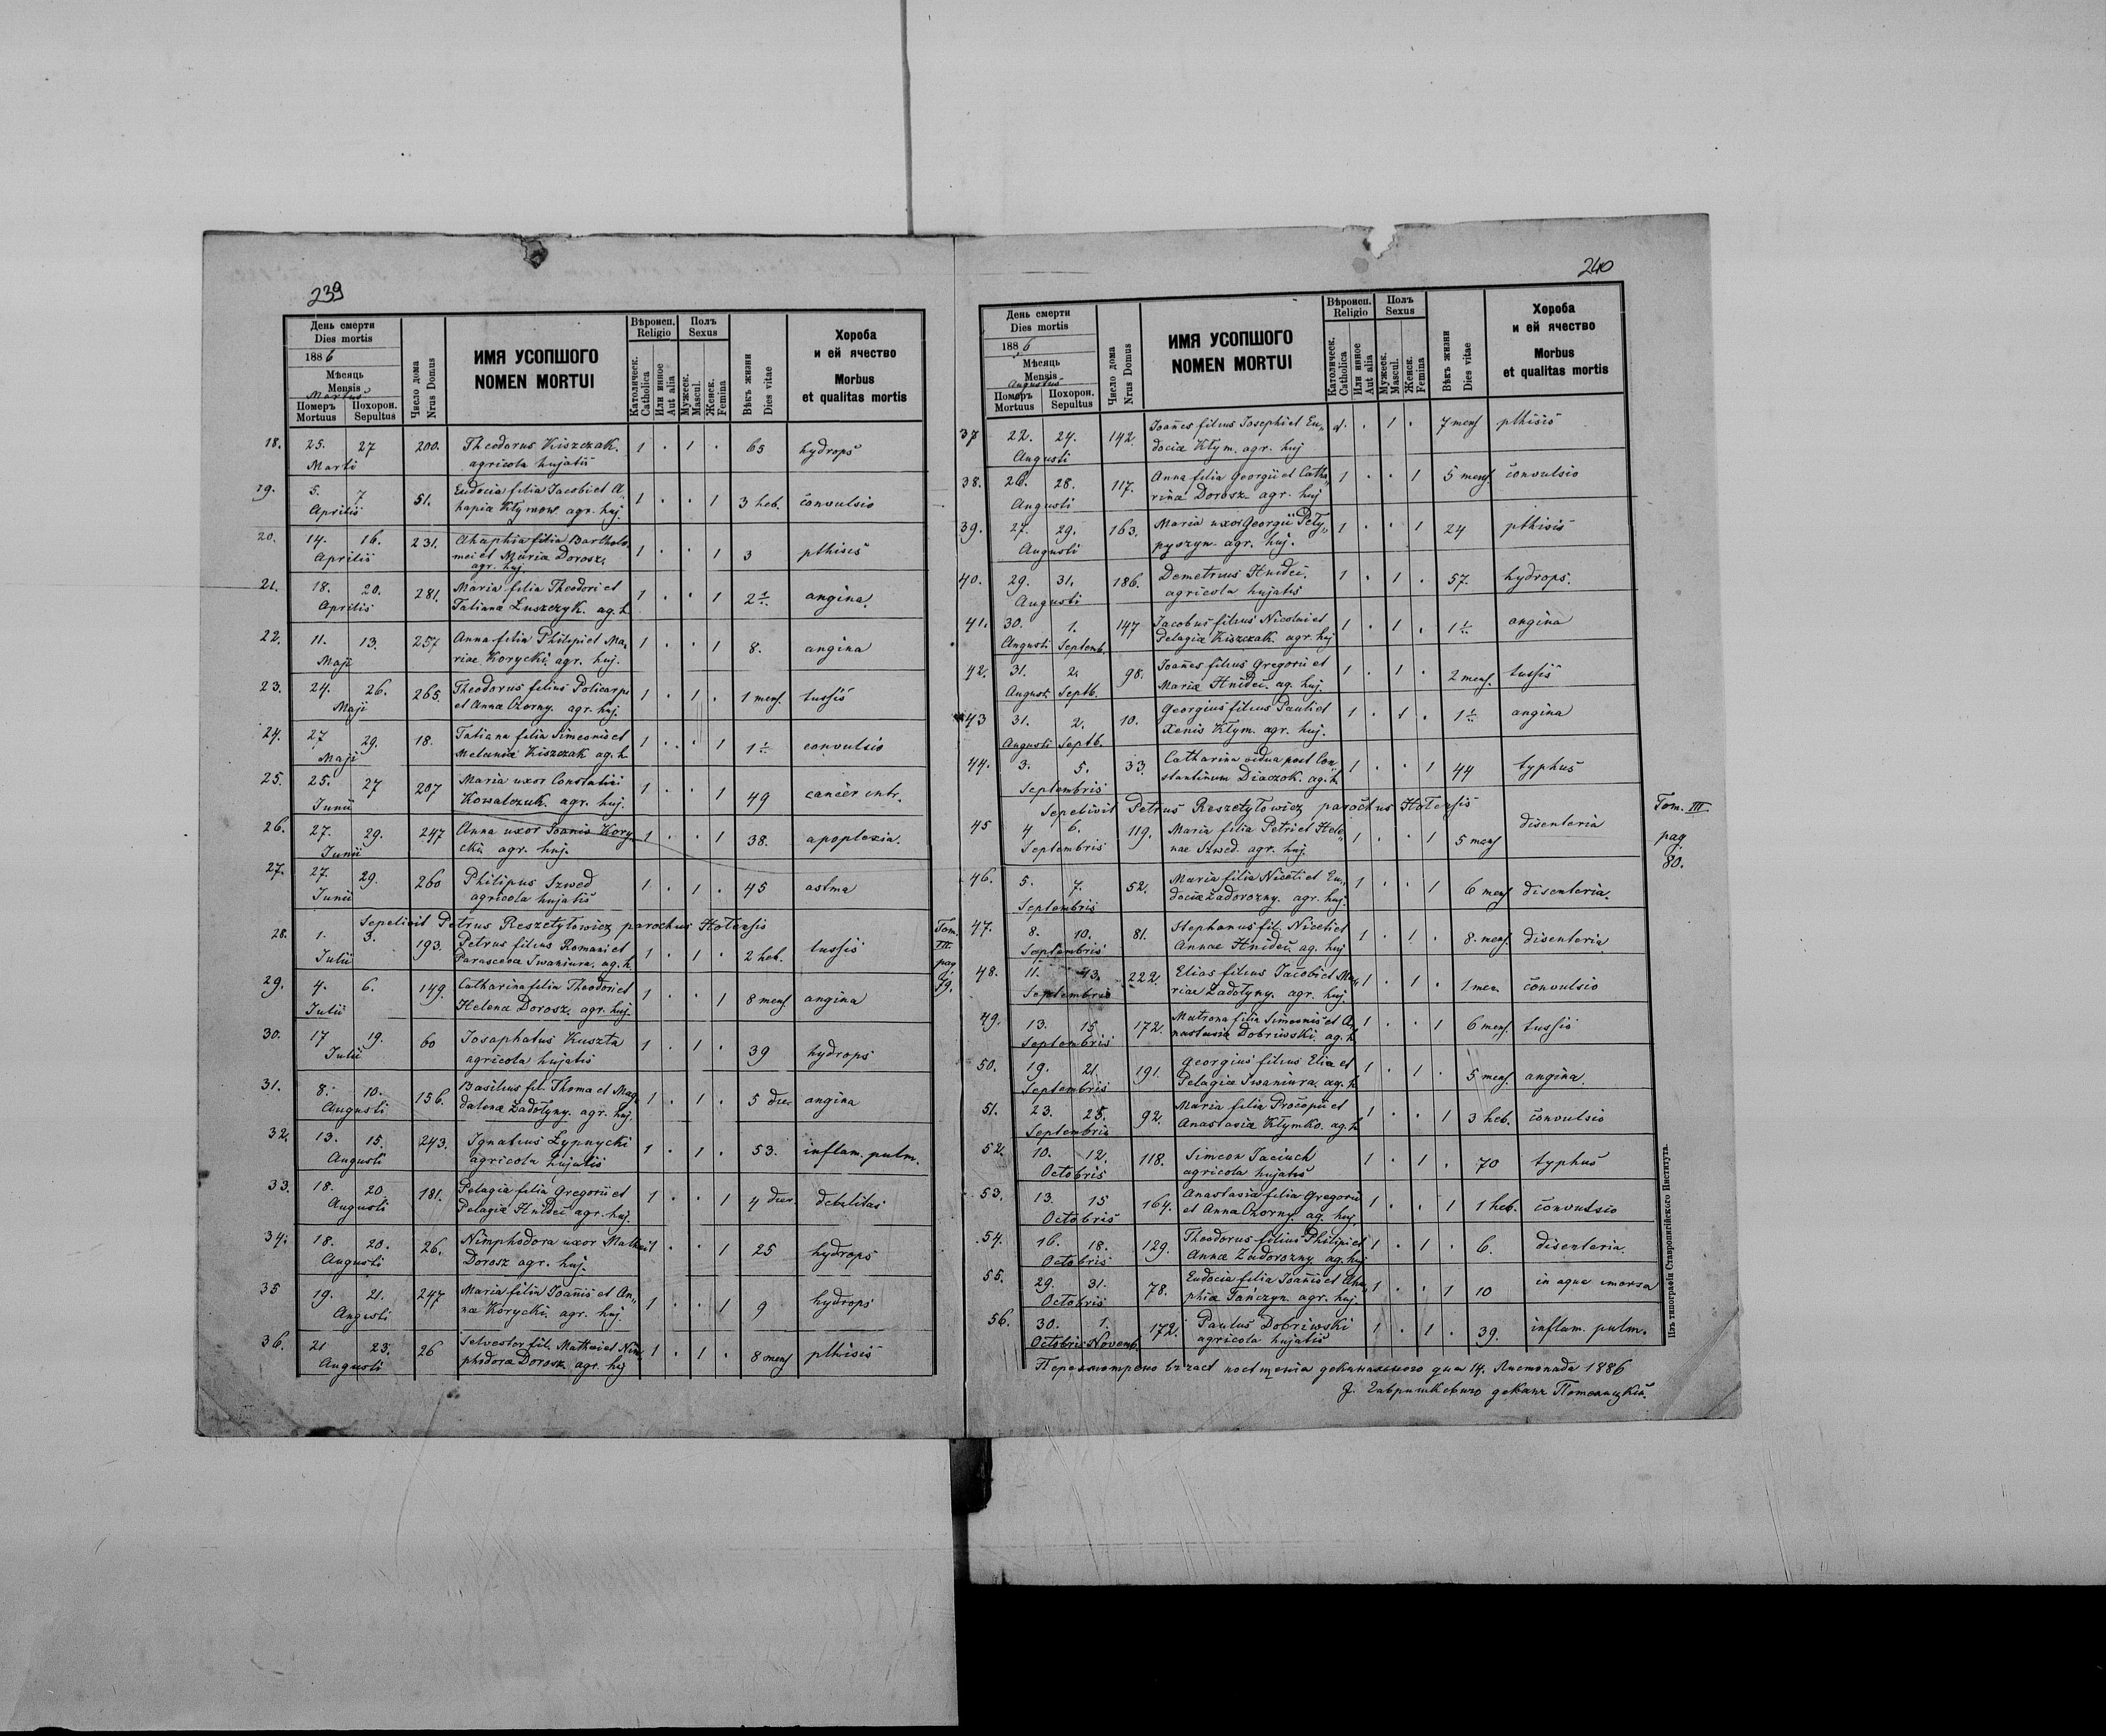 239
День смерти
Dies mortis
1886
Мѣсяць
Mensis
Martius
Померъ Mortuus
Похорон. Sepultus
Число дома
Nrus Domus
ИМЯ УСОПШОГО
NOMEN MORTUI
Вѣроисп.
Religio
Католическ.
Catholica
Или инное
Aut alia
Полъ
Sexus
Мужеск.
Mascul.
Женск.
Femina
Вѣкъ жизни
Dies vitae
Хороба
и ей ячество
Morbus
et qualitas mortis
18. 25. 27 200. Theodorus Kiszczak. 1 . 1 . 65 hydrops
Marti agricola hujatis
19. 5. 7 51. Eudocia filia Jacobi et A, 1 . . 1 3 heb. convulsio
Aprilis hapia Klymow. agr. huj.
20. 14. 16. 231. Ahaphia filia Bartholo, 1 . . 1 3 pthisis
Aprilis mei et Maria Dorosz.
agr. huj.
21. 18. 20. 281. Maria filia Theodori et 1 . . 1 2½. angina.
Aprilis Tatiana Łuszczyk. ag. h.
22. 11. 13. 257 Anna filia Philipi et Ma, 1 . . 1 8. angina
Maji riae Korycki. agr. huj.
23. 24. 26. 265. Theodorus filius Policarpi 1 . 1 . 1 mens. tussis
Maji et Anna Czorny. agr. huj.
24. 27 29. 18. Tatiana filia Simeonis et 1 . . 1 1½ convulsio
Maji Melania Kiszczak ag. h
25. 25. 27 207 Maria uxor Constatini 1 . . 1 49 cancer intr.
Junii Kowalczuk. agr. huj.
26. 27. 29. 247 Anna uxor Joanis Kory, 1 . . 1 38. apoplexia.
Junii cki agr. huj.
27. 27. 29. 260 Philipus Szwed 1 . 1 . 45 astma
Junii agricola hujatis
Sepelivit Petrus Reszetyłowicz parochus Hotensis
28. 1. 3. 193. Petrus filius Romani et 1 . 1 . 2 heb. tussis
Julii Parasceva Iwaniura. ag. h.
Tom.
III.
pag
79.
29. 4. 6. 149. Catharina filia Theodori et 1 . . 1 8 mens angina
Julii Helena Dorosz. agr. huj.
30. 17 19. 60 Josaphatus Kuszta 1 . 1 . 39 hydrops
Julii agricola hujatis
31. 8. 10. 156. Basilius fil. Thoma et Mag, 1 . 1 . 5 dier angina
Augusti dalena Zadołyny. agr. huj.
32. 13. 15. 243. Ignatius Łypnycki 1 . 1 . 53. inflam. pulm.
Augusti agricola hujatis
33. 18. 20. 181. Pelagia filia Gregorii et 1 . . 1 4 dier. debilitas
Augusti Pelagia Hnidei agr. huj.
34. 18. 20. 26. Nimphodora uxor Mathei 1 . . 1 25 hydrops
Augusti Dorosz agr. huj.
35 19. 21. 247 Maria filia Joannis et An, 1 . . 1 9 hydrops
Augusti na Korycki. agr. huj.
36. 21 23. 26 Selvester fil. Mathei et Nim, 1 . 1 . 8 mens pthisis
Augusti phodora Dorosz. agr. huj
240
День смерти
Dies mortis
1886
Мѣсяць
Mensis
Augustus
Померъ Mortuus
Похорон. Sepultus
Число дома
Nrus Domus
ИМЯ УСОПШОГО
NOMEN MORTUI
Вѣроисп.
Religio
Католическ.
Catholica
Или инное
Aut alia
Полъ
Sexus
Мужеск.
Mascul.
Женск.
Femina
Вѣкъ жизни
Dies vitae
Хороба
и ей ячество
Morbus
et qualitas mortis
37 22. 24. 142. Joannes filius Josephi et Eu, 1. . 1 . 7 mens pthisis
Augusti docia Kłym. agr. huj
38. 26. 28. 117. Anna filia Georgii et Catha, 1 . . 1 5 mens. convulsio
Augusti rina Dorosz. agr. huj
39. 27. 29. 163. Maria uxor Georgii Pety, 1 . . 1 24 pthisis
Augusti pyszyn. agr. huj.
40. 29. 31. 186. Demetrius Hnidei. 1 . 1 . 57. hydrops.
Augusti agricola hujatis
41. 30. 1. 147 Jacobus filius Nicolai et 1 . 1 . 1½. angina
Augusti Septemb. Pelagia Kiszczak. agr. huj
42. 31. 2. 98. Joannes filius Gregorii et 1 . 1 . 2 mens. tussis
August. Septb. Maria Hnidei. ag. huj.
43 31. 2. 10. Georgius filius Pauli et 1 . 1 . 1½ angina
Augusti Septb. Xenis Kłym. agr. huj.
44. 3. 5. 33. Catharina vidua post Con, 1 . . 1 44 typhus
Septembris stantinum Diaczok. ag. h.
Sepelivit Petrus Reszetyłowicz parochus Hotensis
45 4 6. 119. Maria filia Petri et Hele, 1 . . 1 5 mens disenteria
Septembris nae Szwed. agr. huj.
Tom. III
pag.
80.
46. 5. 7. 52. Maria filia Niceti et Eu, 1 . . 1 6 mens disenteria.
Septembris docia Zadorozny. agr. huj.
47. 8. 10. 81. Stephanus fil. Niceti et 1 . 1 . 8. mens. disenteria
Septembris Annae Hnidei. ag. huj
48. 11. 13. 222. Elias filius Jacobi et Ma, 1 . 1 . 1 men. convulsio
Septembris riae Zadołyny. agr. huj.
49. 13. 15 172. Matrona filia Simeonis et A, 1 . . 1 6 mens. tussis
Septembris nastasia Dobriwski. ag. h
50. 19. 21. 191. Georgius filius Elia et 1 . 1 . 5 mens. angina.
Septembris Pelagia Iwaniura. ag. h
51. 23. 25. 92. Maria filia Procopii et 1 . . 1 3 heb. convulsio
Septembris Anastasia Kłymko. ag. h
52. 10. 12. 118. Simeon Jaciuch 1 . 1 . 70 typhus
Octobris agricola hujatis
53. 13. 15 164. Anastasia filia Gregorii 1 . . 1 1 heb. convulsio
Octobris et Anna Czorny. ag. huj.
54. 16. 18. 129. Theodorus filius Philipi et 1 . 1 . 6. disenteria.
Octobris Annae Zadorozny. ag. huj
55. 29. 31. 78. Eudocia filia Joannis et Aha, 1 . . 1 10 in aqua imersa
Octobris phia Tańczyn. agr. huj.
56. 30. 1. 172. Paulus Dobriwski 1 . 1 . 39. inflam. pulm.
Octobris Novemb. agricola hujatis
Пересмотрено вчаст посіщенія деканального дня 14. Листопада 1886
декан
Изъ типографіи Ставропигійского Института.